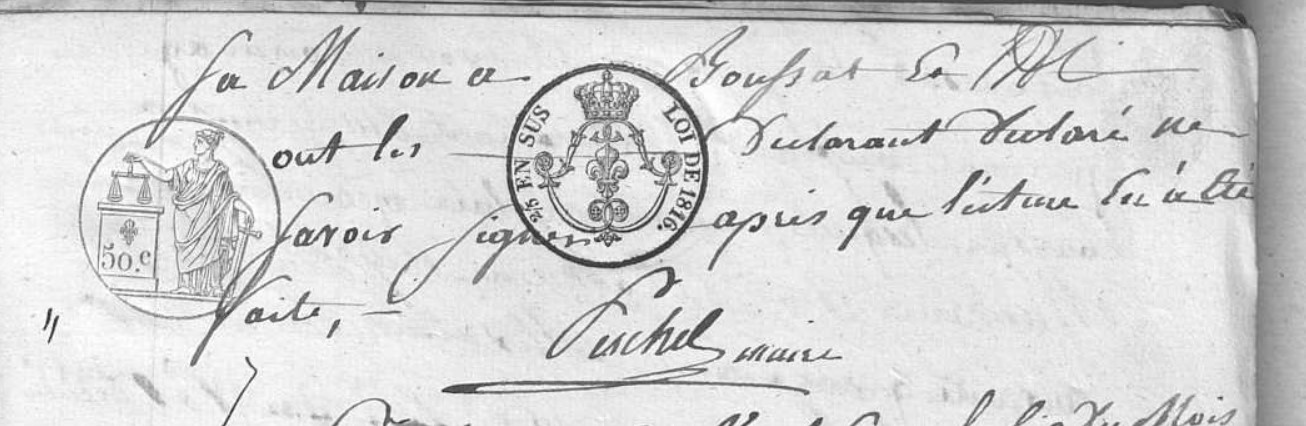 Sa Maison a Boussat Et
ont les Declarant declaré ne
Savoir Signer après que lecture En a Eté
faite, —
maire
2/5 EN SUS LOI DE 1816.
50.c
Mois